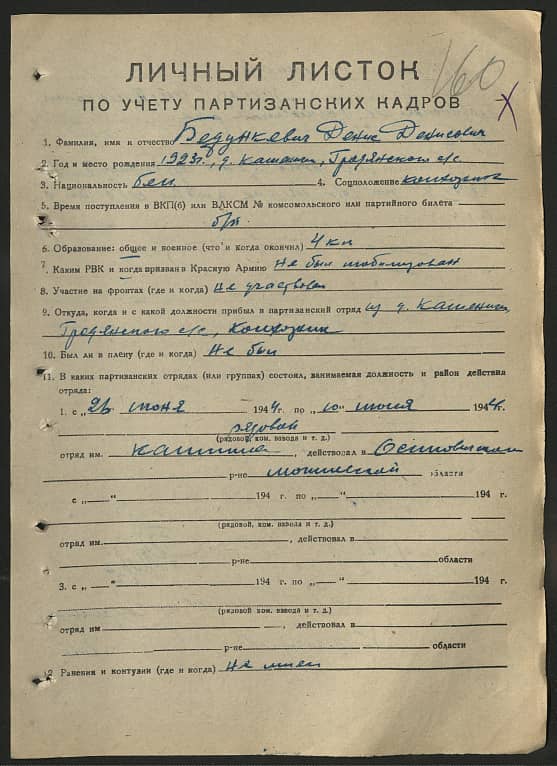 160
ЛИЧНЫЙ ЛИСТОК
ПО УЧЕТУ ПАРТИЗАНСКИХ КАДРОВ
1. Фамилия, имя и отчество Бедункевич Денис Денисович
2. Год и место рождения 1923г., д. Кашенец, Градянского с/с
3. Национальность бел. 4. Соцположение колхозник
5. Время поступления в ВКП(б) или ВЛКСМ № комсомольского или партийного билета
б/п
6. Образование: общее и военное (что и когда окончил) 4 кл
7. Каким РВК и когда призван в Красную Армию Не был мобилизован
8. Участие на фронтах (где и когда) Не участвовал
9. Откуда, когда и с какой должности прибыл в партизанский отряд из д.
Градянского с/с, Колхозник
10. Был ли в плену (где и когда) Не был
11. В каких партизанских отрядах (или группах) состоял, занимаемая должность и район действия
отряда:
1. с „26 июня 1944г. по „10" июля 1944г.
рядовой
(рядовой, ком. взвода и т. д.)
отряд им. , действовал в Осиповичском
р-не могилевской области
с „ — " 194 г. по „ — " 194 г.
(рядовой, ком. взвода и т. д.)
отряд им. , действовал в
р-не области
3. с „ — " 194 г. по „ — " 194 г.
(рядовой ком. взвода и т. д.)
отряд им , действовал в
р-не области
12 Ранения и контузии (где и когда) Не имел